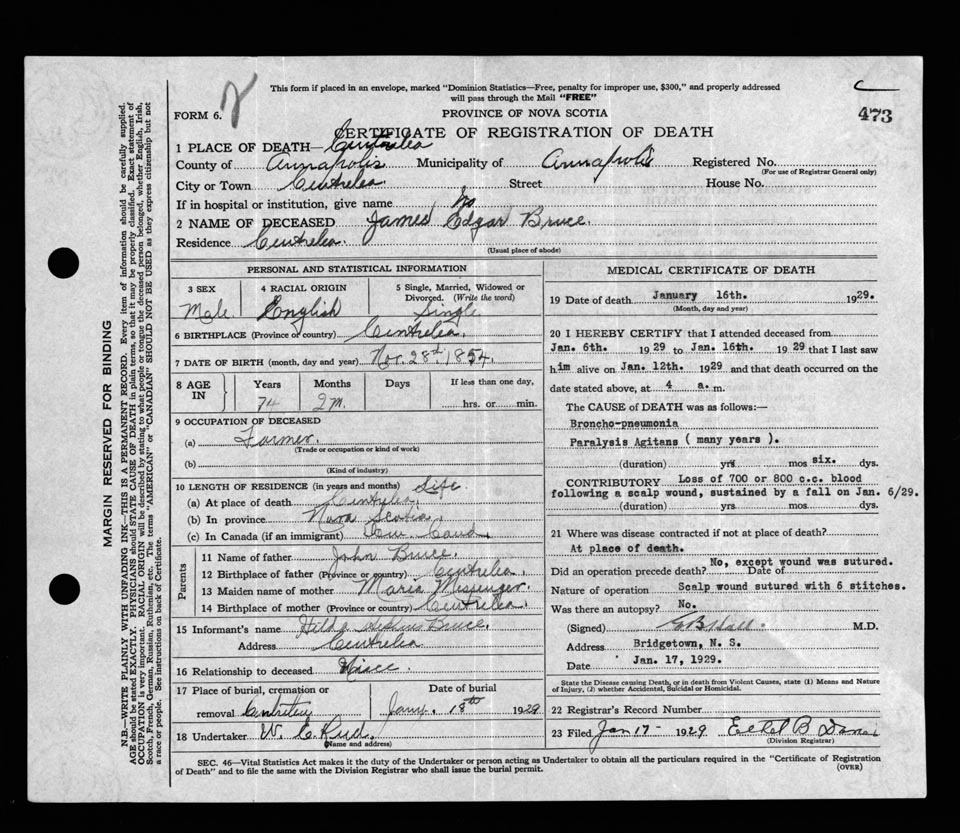 This form if placed in an envelope, marked "Dominion Statistics—Free, penalty for improper use, $300," and properly addressed
will pass through the Mail "FREE"
FORM 6.
PROVINCE OF NOVA SCOTIA
473
CERTIFICATE OF REGISTRATION OF DEATH
1 PLACE OF DEATH— Centrelea
County of Annapolis Municipality of Annapolis Registered No.
(For use of Registrar General only)
City or Town Centrelea Street House No.
If in hospital or institution, give name No
2 NAME OF DECEASED James Edgar Bruce.
Residence Centrelea.
(Usual place of abode)
MARGIN RESERVED FOR BINDING
N.B.—WRITE PLAINLY WITH UNFADING INK—THIS IS A PERMANENT RECORD. Every item of information should be carefully supplied.
AGE should be stated EXACTLY. PHYSICIANS should STATE CAUSE OF DEATH in plain terms, so that it may be properly classified. Exact statement of
OCCUPATION is very important. RACIAL ORIGIN will be described by stating to what people or tongue the deceased person belonged, whether English, Irish,
Scotch, French, German, Russian, Ruthenian, etc. The terms "AMERICAN" or "CANADIAN" SHOULD NOT BE USED as they express citizenship but not
a race or people. See instructions on back of Certificate.
PERSONAL AND STATISTICAL INFORMATION
3 SEX 4 RACIAL ORIGIN 5 Single, Married, Widowed or
Divorced. (Write the word)
Male English Single
6 BIRTHPLACE (Province or country) Centrelea.
7 DATE OF BIRTH (month, day and year) Nov. 28th 1854.
8 AGE IN Years Months Days If less than one day,
74 2 m. hrs. or min.
9 OCCUPATION OF DECEASED
(a) Farmer.
(Trade or occupation or kind of work)
(b)
(Kind of industry)
10 LENGTH OF RESIDENCE (in years and months) Life
(a) At place of death Centrelea
(b) In province Nova Scotia
(c) In Canada (if an immigrant)
Parents
11 Name of father John Bruce.
12 Birthplace of father (Province or country) Centrelea.
13 Maiden name of mother Maria Messinger
14 Birthplace of mother (Province or country) Centrelea
15 Informant's name Hilda Bruce.
Address Centrelea
16 Relationship to deceased Niece.
17 Place of burial, cremation or Date of burial
removal Jany. 18th 1929
18 Undertaker W. C.
(Name and address)
MEDICAL CERTIFICATE OF DEATH
19 Date of death January 16th. 1929.
(Month, day and year)
20 I HEREBY CERTIFY that I attended deceased from
Jan. 6th. 1929 to Jan. 16th. 1929 that I last saw
him alive on Jan. 12th. 1929 and that death occurred on the
date stated above, at 4 a. m.
The CAUSE of DEATH was as follows:—
Broncho-pneumonia
Paralysis Agitans ( many years ).
(duration) yrs mos six. dys.
CONTRIBUTORY Loss of 700 or 800 c.c. blood
following a scalp wound, sustained by a fall on Jan. 6/29.
(duration) yrs. mos. dys.
21 Where was disease contracted if not at place of death?
At place of death.
No, except wound was sutured.
Did an operation precede death? Date of
Nature of operation Scalp wound sutured with 6 stitches.
Was there an autopsy? No.
(Signed) Hall M.D.
Address Bridgetown, N. S.
Date Jan. 17, 1929.
State the Disease causing Death, or in death from Violent Causes, state (1) Means and Nature
of Injury, (2) whether Accidental, Suicidal or Homicidal.
22 Registrar's Record Number
23 Filed Jan 17- 1929 Ethel B
(Division Registrar)
SEC. 46—Vital Statistics Act makes it the duty of the Undertaker or person acting as Undertaker to obtain all the particulars required in the "Certificate of Registration
of Death" and to file the same with the Division Registrar who shall issue the burial permit.
(OVER)